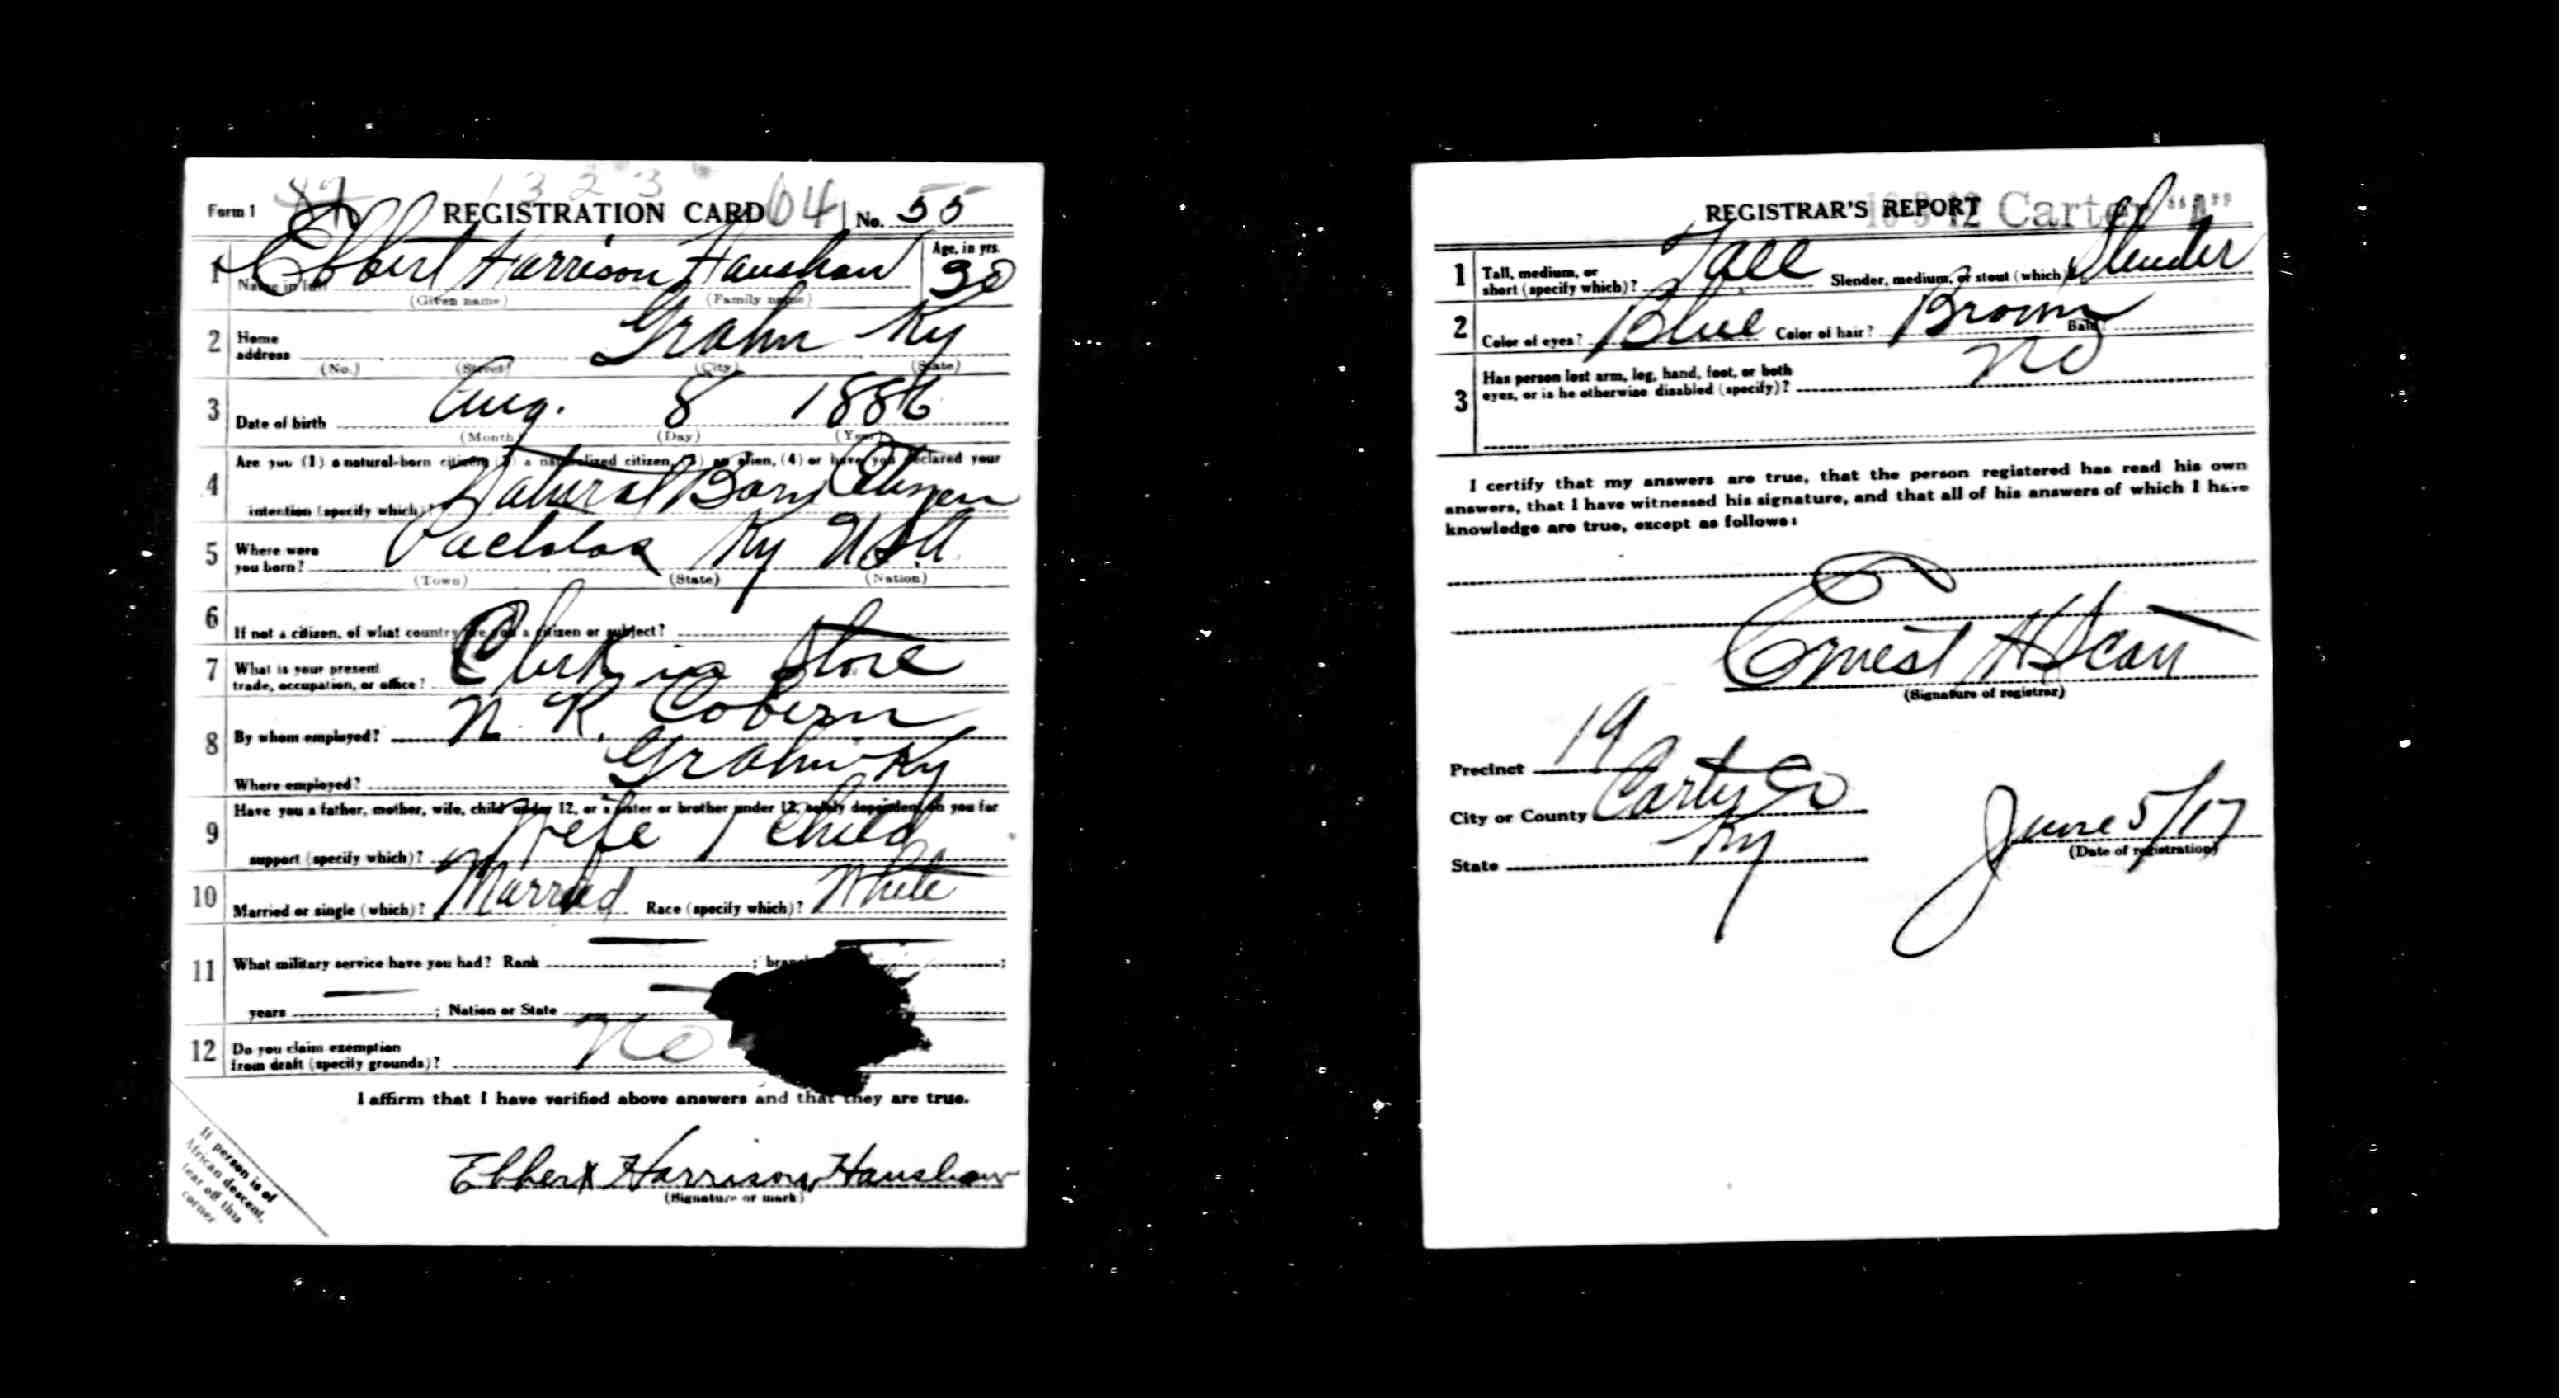 Form 1 REGISTRATION CARD 64 No. 55
1323
1 Ebbert Harrison Haushaw Age, in yrs. 30
Name in full (Given name) (Family name)
2 Home address Grahn Ky
(No.) (Street) (City) (State)
3 Date of birth Aug. 8 1886
(Month) (Day) (Year)
4 Are you (1) a natural-born citizen, (2) a naturalized citizen, (3) an alien, (4) or have you declared your
intention (specify which)? Natural Born Citizen
5 Where were you born? Pactolas Ky USA
(Town) (State) (Nation)
6 If not a citizen, of what country are you a citizen or subject?
7 What is your present trade, occupation, or office? Clerk in Store
8 By whom employed? N. R. Cobern
Where employed? Grahn Ky
9 Have you a father, mother, wife, child under 12, or a sister or brother under 12, solely dependent on you for
support (specify which)? Wife 1 Child
10 Married or single (which)? Married Race (specify which)? White
11 What military service have you had? Rank ; branch ;
years ; Nation or State
12 Do you claim exemption from draft (specify grounds)? No
I affirm that I have verified above answers and that they are true.
Ebbert Harrison Haushaw
(Signature or mark)
If person is of
African descent,
tear off this
corner
REGISTRAR'S REPORT Carter "A"
1 Tall, medium, or short (specify which)? Tall Slender, medium, or stout (which)? Slender
2 Color of eyes? Blue Color of hair? Brown Bald?
3 Has person lost arm, leg, hand, foot, or both
eyes, or is he otherwise disabled (specify)? No
I certify that my answers are true, that the person registered has read his own
answers, that I have witnessed his signature, and that all of his answers of which I have
knowledge are true, except as follows:
Ernest H Scott
(Signature of registrar)
Precinct 19
City or County Carter Co
State Ky
June 5/17
(Date of registration)